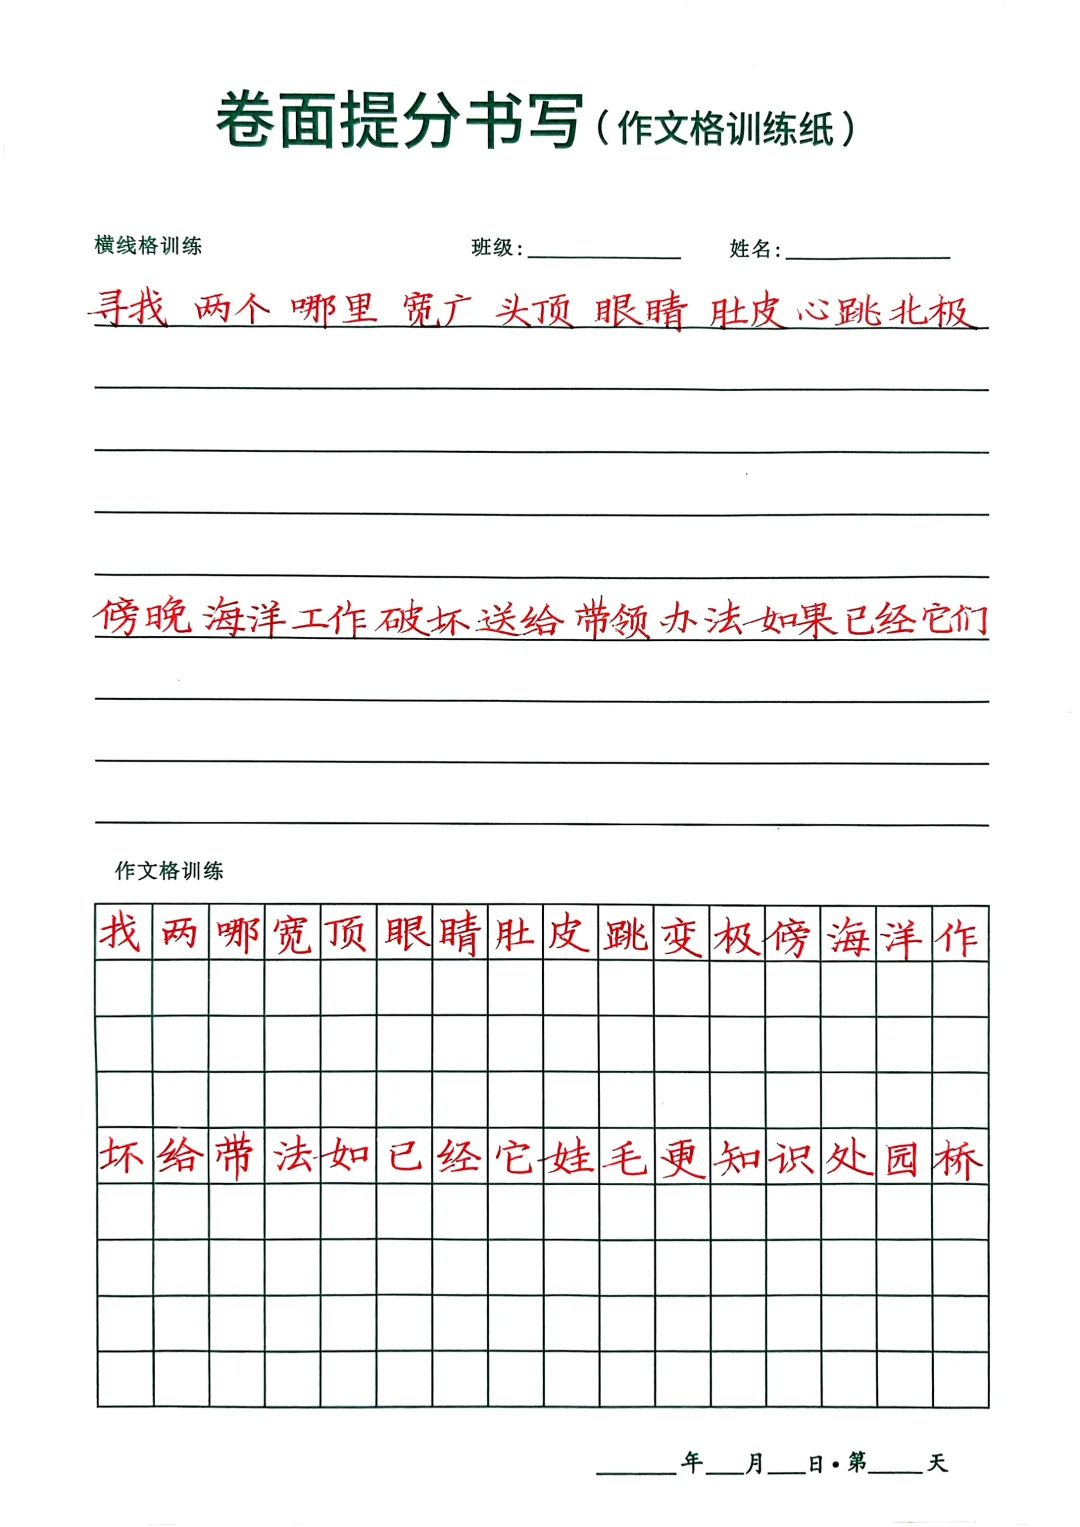 卷面提分书写（作文格训练纸）
横线格训练 班级： 姓名：
寻找 两个 哪里 宽广 头顶 眼睛 肚皮 心跳 北极
傍晚 海洋 工作 破坏 送给 带领 办法 如果 已经 它们
作文格训练
找两哪宽顶眼睛肚皮跳变极傍海洋作
坏给带法如已经它娃毛更知识处园桥
年 月 日·第 天